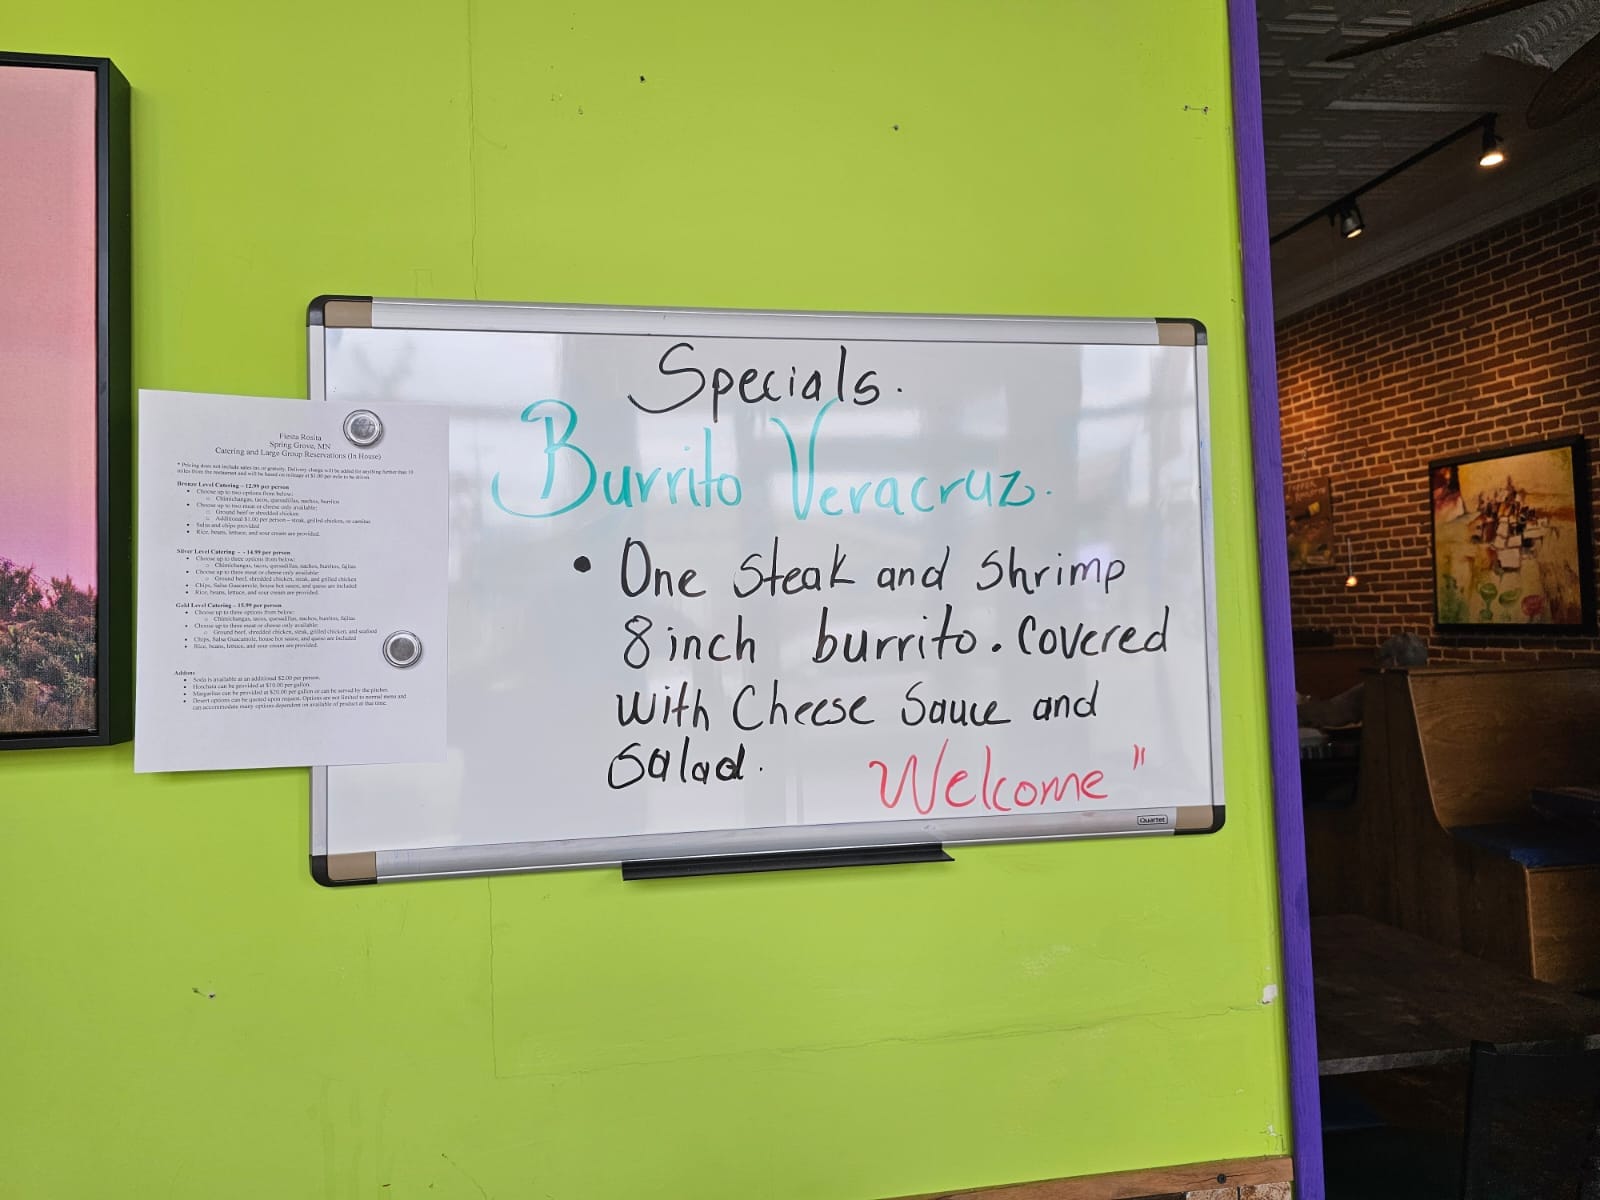 Specials.
Burrito Veracruz.
• One Steak and Shrimp
8 inch burrito. Covered
with Cheese Sauce and
Salad.
Welcome"
Quartet
Fiesta Rosita
Spring Grove, MN
Catering and Large Group Reservations (In House)
* Pricing does not include sales tax or gratuity. Delivery charge will be added for anything further than 10
miles from the restaurant and will be based on mileage at $1.00 per mile to be driven.
Bronze Level Catering – 12.99 per person
• Choose up to two options from below:
o Chimichangas, tacos, quesadillas, nachos, burritos
• Choose up to two meat or cheese only available:
o Ground beef or shredded chicken
o Additional $1.00 per person – steak, grilled chicken, or carnitas
• Salsa and chips provided
• Rice, beans, lettuce, and sour cream are provided.
Silver Level Catering – - 14.99 per person
• Choose up to three options from below:
o Chimichangas, tacos, quesadillas, nachos, burritos, fajitas
• Choose up to three meat or cheese only available:
o Ground beef, shredded chicken, steak, and grilled chicken
• Chips, Salsa Guacamole, house hot sauce, and queso are included
• Rice, beans, lettuce, and sour cream are provided.
Gold Level Catering – 15.99 per person
• Choose up to three options from below:
o Chimichangas, tacos, quesadillas, nachos, burritos, fajitas
• Choose up to three meat or cheese only available:
o Ground beef, shredded chicken, steak, grilled chicken, and seafood
• Chips, Salsa Guacamole, house hot sauce, and queso are included
• Rice, beans, lettuce, and sour cream are provided.
Addons
• Soda is available at an additional $2.00 per person.
• Horchata can be provided at $10.00 per gallon.
• Margaritas can be provided at $20.00 per gallon or can be served by the pitcher.
• Desert options can be quoted upon request. Options are not limited to normal menu and
can accommodate many options dependent on available of product at that time.